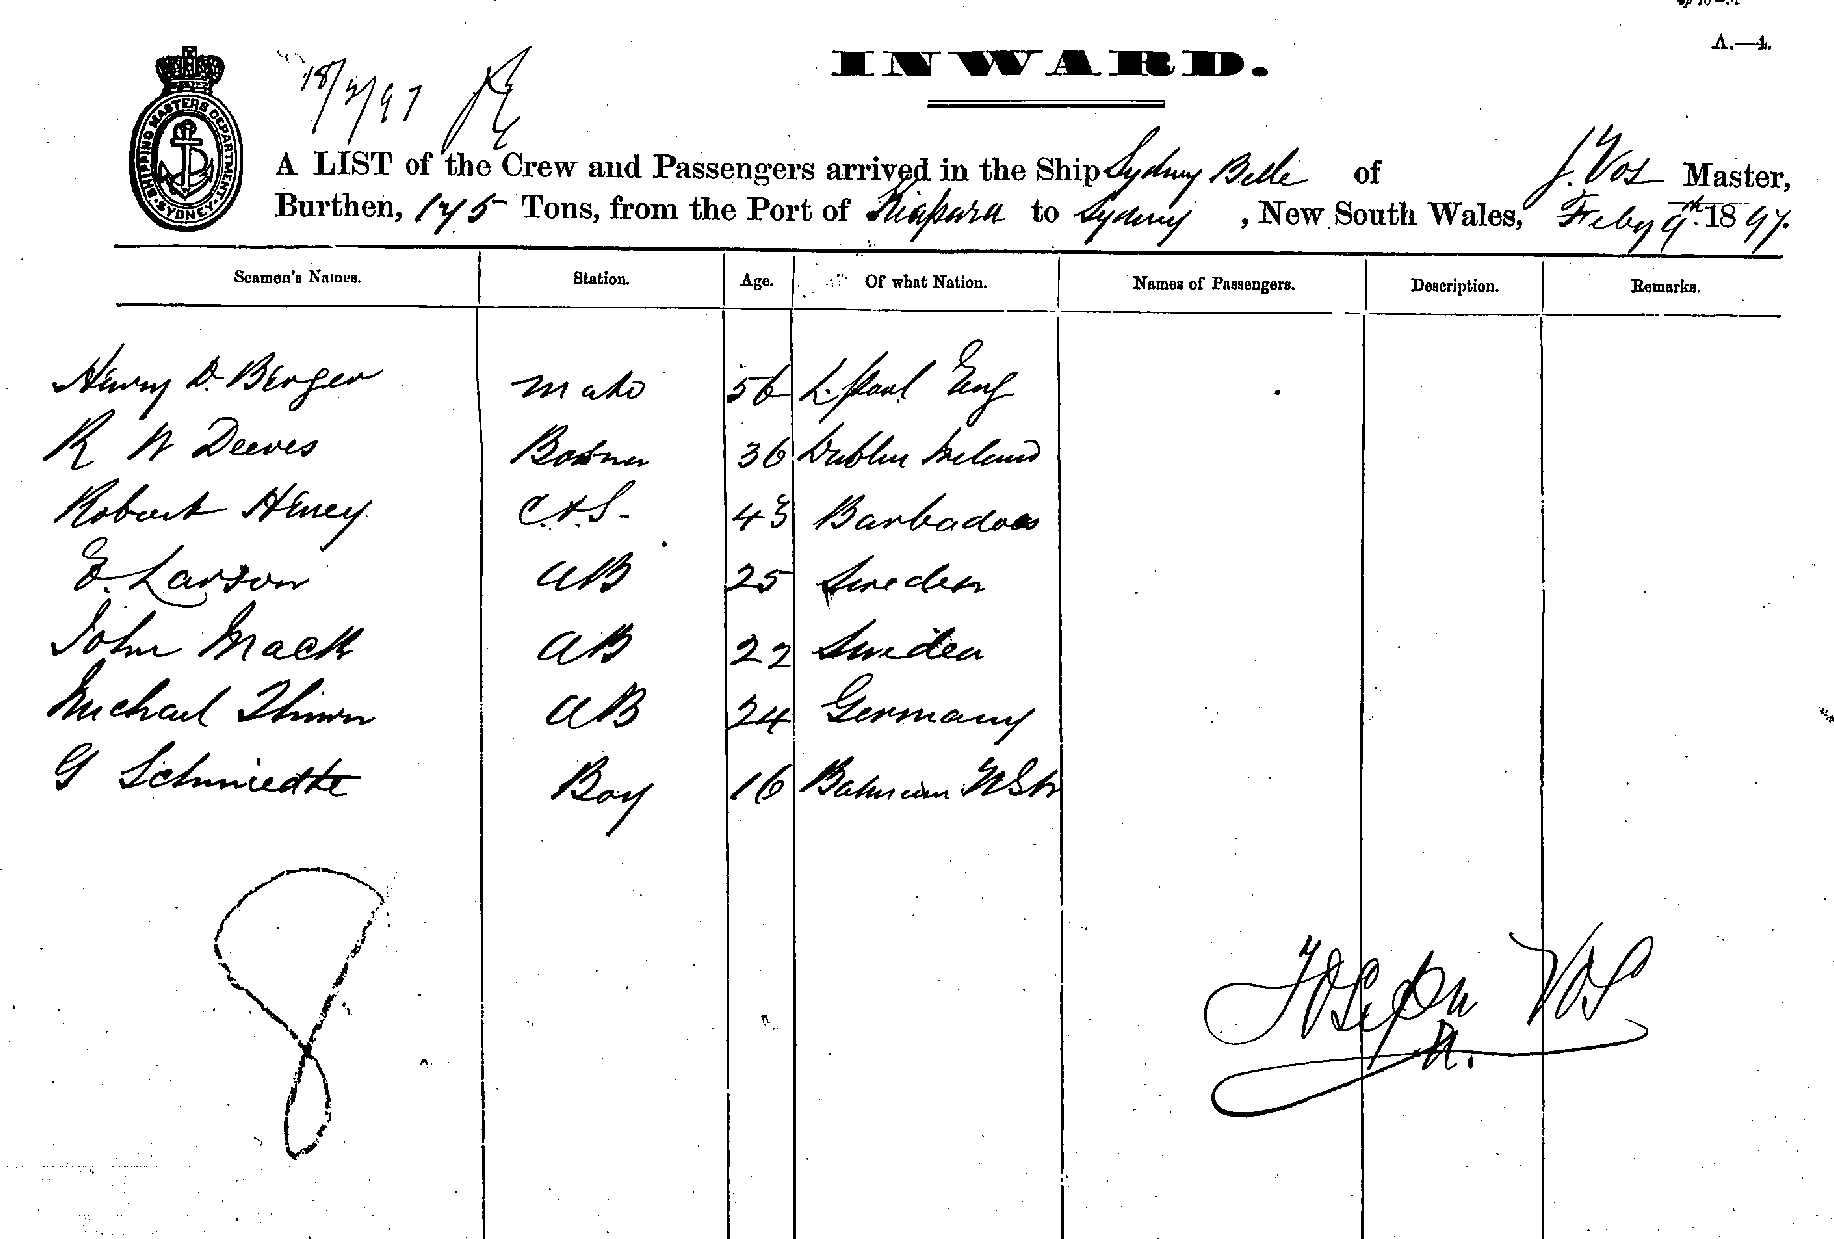 A.—4.
18/2/97
INWARD.
SHIPPING MASTERS DEPARTMENT SYDNEY
A LIST of the Crew and Passengers arrived in the Ship Sydney Belle of J. Vos Master,
Burthen, 175 Tons, from the Port of Kiapara to Sydney, New South Wales, Feby 9th 1897.
Seamen's Names. Station. Age. Of what Nation. Names of Passengers. Description. Remarks.
Henry D. Berger Mate 56 L.pool Eng
R W Deeves Bosun 36 Dublin Ireland
Robert Heney C & S- 43 Barbados
E. Larson AB 25 Sweden
John Mack AB 22 Sweden
Michael AB 24 Germany
G Schmiedte Boy 16 NSW
8
Joseph Vos